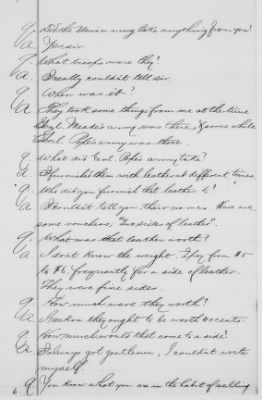 Q. Did the Union army take anything from you?
A. Yes sir.
Q. What troops were they?
A. I really couldn't tell sir.
Q. When was it?
A. They took some things from me at the time
Genl. Meade's army was there, & some while
Genl. Pope's army was there.
Q. What did Genl Pope's army take?
A. I furnished them with leather at different times.
Q. Who did you furnish that leather to?
A. I couldn't tell you their names. Here are
some vouchers, "Two sides of leather".
Q. What was that leather worth?
A. I don't know the weight. I pay from $5
to $6. frequently for a side of leather.
They were fine sides.
Q. How much were they worth?
A. I reckon they ought to be worth 60 cents.
Q. How much would that come to a side?
A. I always got gentlemen, I couldn't write
myself.
Q. You know what you are in the habit of selling